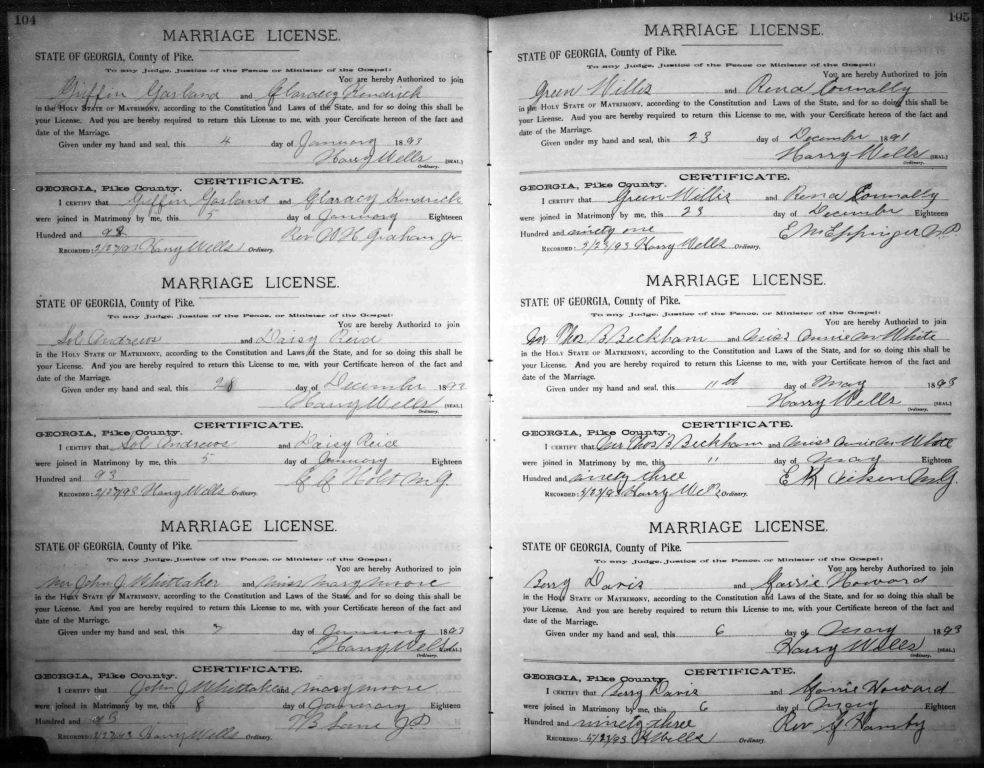 104
MARRIAGE LICENSE.
STATE OF GEORGIA, County of Pike.
To any Judge, Justice of the Peace or Minister of the Gospel:
You are hereby Authorized to join
Griffin Garland and Kendrick
in the HOLY STATE OF MATRIMONY, according to the Constitution and Laws of the State, and for so doing this shall be
your License. And you are hereby required to return this License to me, with your Certificate hereon of the fact and
date of the Marriage.
Given under my hand and seal, this 4 day of January 1893
Harry Wells
Ordinary.
CERTIFICATE.
GEORGIA, Pike County.
I CERTIFY that Griffin Garland and Kendrick
were joined in Matrimony by me, this 5 day of January Eighteen
Hundred and 93 Rev W H Graham Jr
RECORDED: 2/27/93 Harry Wells Ordinary.
MARRIAGE LICENSE.
STATE OF GEORGIA, County of Pike.
To any Judge, Justice of the Peace or Minister of the Gospel:
You are hereby Authorized to join
Sol Andrews and Daisy
in the HOLY STATE OF MATRIMONY, according to the Constitution and Laws of the State, and for so doing this shall be
your License. And you are hereby required to return this License to me, with your Certificate hereon of the fact and
date of the Marriage.
Given under my hand and seal, this 28 day of December 1892
Harry Wells (SEAL.)
Ordinary.
CERTIFICATE.
GEORGIA, Pike County.
I CERTIFY that Sol Andrews and Daisy
were joined in Matrimony by me, this 5 day of January Eighteen
Hundred and 93 Holt M G
RECORDED: 2/27/93 Harry Wells Ordinary.
MARRIAGE LICENSE.
STATE OF GEORGIA, County of Pike.
To any Judge, Justice of the Peace or Minister of the Gospel:
You are hereby Authorized to join
Mr John J Whittaker and Miss Mary Moore
in the HOLY STATE OF MATRIMONY, according to the Constitution and Laws of the State, and for so doing this shall be
your License. And you are hereby required to return this License to me, with your Certificate hereon of the fact and
date of the Marriage.
Given under my hand and seal, this 7 day of January 1893
Harry Wells (SEAL.)
Ordinary.
CERTIFICATE.
GEORGIA, Pike County.
I CERTIFY that John J Whittaker and Mary Moore
were joined in Matrimony by me, this 8 day of January Eighteen
Hundred and 93 J P
RECORDED: 2/27/93 Harry Wells Ordinary.
105
MARRIAGE LICENSE.
STATE OF GEORGIA, County of Pike.
To any Judge, Justice of the Peace or Minister of the Gospel:
You are hereby Authorized to join
Green Willis and Rena Connally
in the HOLY STATE OF MATRIMONY, according to the Constitution and Laws of the State, and for so doing this shall be
your License. And you are hereby required to return this License to me, with your Certificate hereon of the fact and
date of the Marriage.
Given under my hand and seal, this 23 day of December 1891
Harry Wells (SEAL.)
Ordinary.
CERTIFICATE.
GEORGIA, Pike County.
I CERTIFY that Green Willis and Rena Connally
were joined in Matrimony by me, this 23 day of December Eighteen
Hundred and ninety one E M Eppinger
RECORDED: 2/27/93 Harry Wells Ordinary.
MARRIAGE LICENSE.
STATE OF GEORGIA, County of Pike.
To any Judge, Justice of the Peace or Minister of the Gospel:
You are hereby Authorized to join
Mr Thos B Beckham and Miss Annie M White
in the HOLY STATE OF MATRIMONY, according to the Constitution and Laws of the State, and for so doing this shall be
your License. And you are hereby required to return this License to me, with your Certificate hereon of the fact and
date of the Marriage.
Given under my hand and seal, this 11th day of May 1893
Harry Wells (SEAL.)
Ordinary.
CERTIFICATE.
GEORGIA, Pike County.
I CERTIFY that Mr Thos B Beckham and Miss Annie M White
were joined in Matrimony by me, this 11 day of May Eighteen
Hundred and ninety three E K Aiken M G.
RECORDED: Harry Wells Ordinary.
MARRIAGE LICENSE.
STATE OF GEORGIA, County of Pike.
To any Judge, Justice of the Peace or Minister of the Gospel:
You are hereby Authorized to join
Berry Davis and Howard
in the HOLY STATE OF MATRIMONY, according to the Constitution and Laws of the State, and for so doing this shall be
your License. And you are hereby required to return this License to me, with your Certificate hereon of the fact and
date of the Marriage.
Given under my hand and seal, this 6 day of May 1893
Harry Wells (SEAL.)
Ordinary.
CERTIFICATE.
GEORGIA, Pike County.
I CERTIFY that Berry Davis and Howard
were joined in Matrimony by me, this 6 day of May Eighteen
Hundred and ninety three Rev Hamby
RECORDED: 5/27/93 H Wells Ordinary.